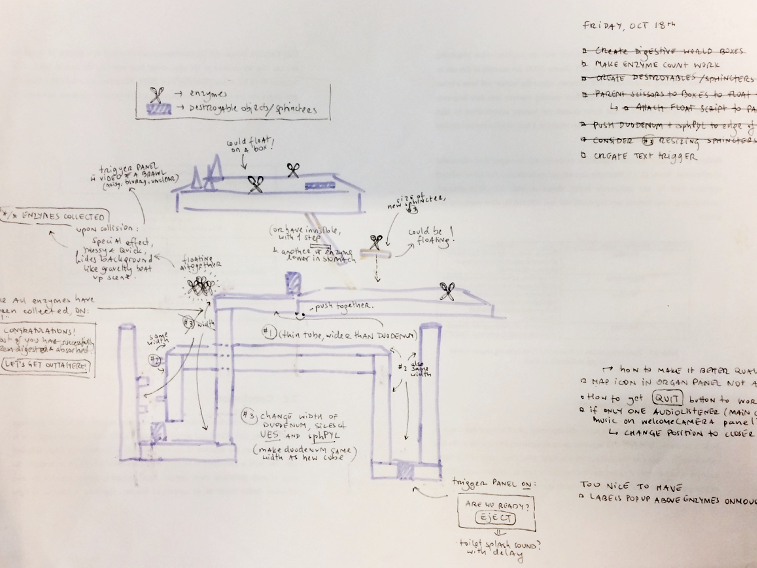 → enzymes
→ Destroyable objects/sphincters
FRIDAY, OCT 18TH
CREATE DIGESTIVE WORLD BOXES
MAKE ENZYME COUNT WORK
CREATE DESTROYABLES/SPHINCTERS
PARENT SCISSORS TO BOXES TO FLOAT
↳ ATTACH FLOAT SCRIPT TO PA
PUSH DUODENUM + sphPYL to edge of
CONSIDER #3 RESIZING SPHINCTERS
CREATE TEXT TRIGGER
could float!
on a box!
trigger PANEL
VIDEO OF A BRAWL
ENZYMES COLLECTED
upon collision:
special effect,
messy & quick,
hides background
like gravelly boat
up scene.
floating
altogether
(or have invisible,
with 1 step
+ another enzyme
lower in stomach
size of
new sphincter,
#3
could be
floating!
push together.
All enzymes have
been collected, ON:
CONGRATULATIONS!
of you have successfully
digested & absorbed
LET'S GET OUTTAHERE!
#3 width
same
width
#2
#1 (thin tube, wider than DUODENUM)
#2 also
same
width
#3 CHANGE WIDTH OF
DUODENUM, SIZES of
UES AND sphPYL
(make duodenum same
width as new cube)
trigger PANEL ON:
ARE WE READY?
EJECT
toilet splash sound?
with delay
→ how to make it better QUAL
MAP ICON IN ORGAN PANEL NOT A
How to get QUIT button to WOR
if ONLY ONE AUDIOLISTENER (MAIN C
music on welcomeCAMERA panel
↳ CHANGE POSITION TO CLOSER
TOO NICE TO HAVE
LABELS POP UP ABOVE ENZYMES ONMOU